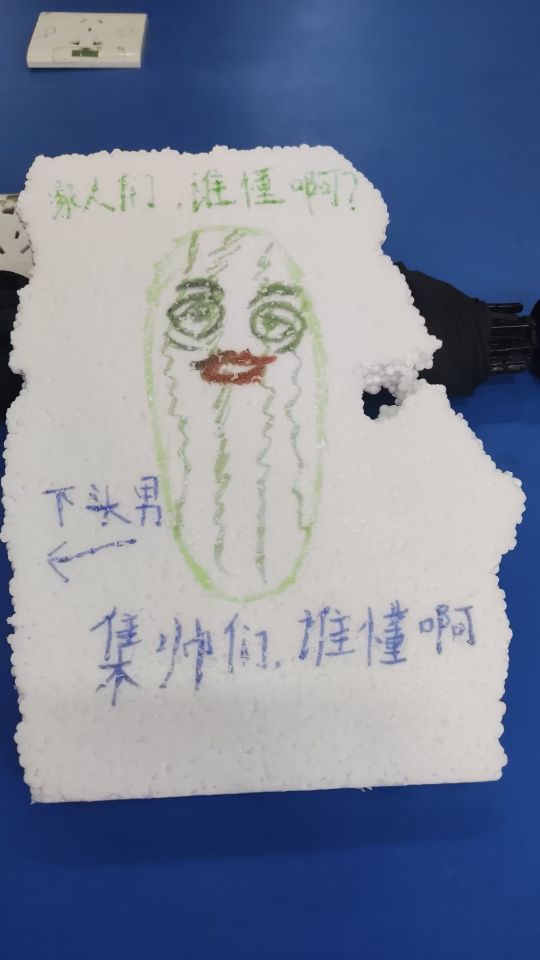 家人们，谁懂啊？
下头男
集帅们，谁懂啊